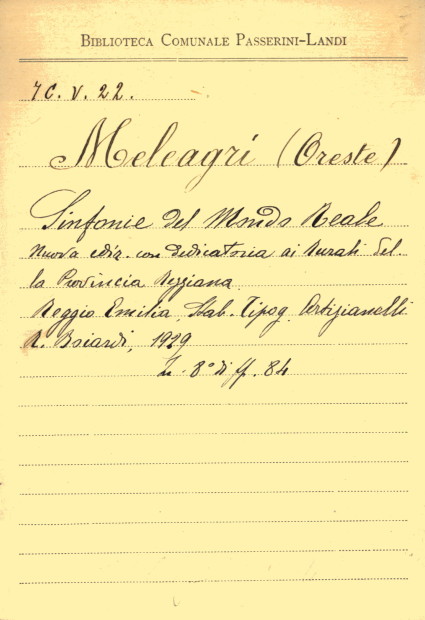 BIBLIOTECA COMUNALE PASSERINI-LANDI
7C. V. 22.
Meleagri (Oreste)
Sinfonie del Mondo Reale
Nuova ediz. con dedicatoria ai Rurali del-
la Provincia Reggiana
Reggio Emilia, Stab. Tipog. Artigianelli
R. Boiardi, 1929
8° di ff. 84